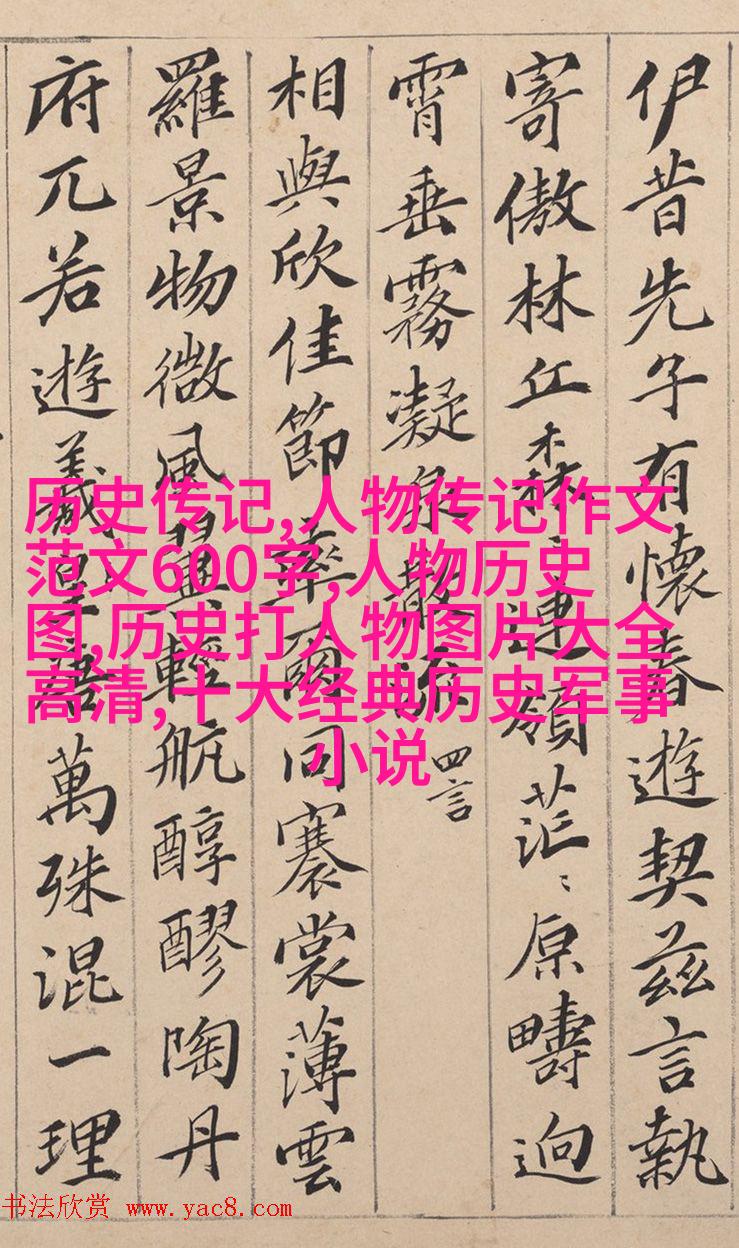 伊昔先子有懷春遊契茲言執
寄傲林丘森〻連嶺茫〻原疇迥
霄垂霧凝泉散流 四言
相與欣佳節率爾同褰裳薄雲
羅景物微風翼輕航醇醪陶丹
府兀若遊羲萬殊混一理
历史传记,人物传记作文
范文600字,人物历史
图,历史打人物图片大全
高清,十大经典历史军事
小说
书法欣赏 www.yac8.com